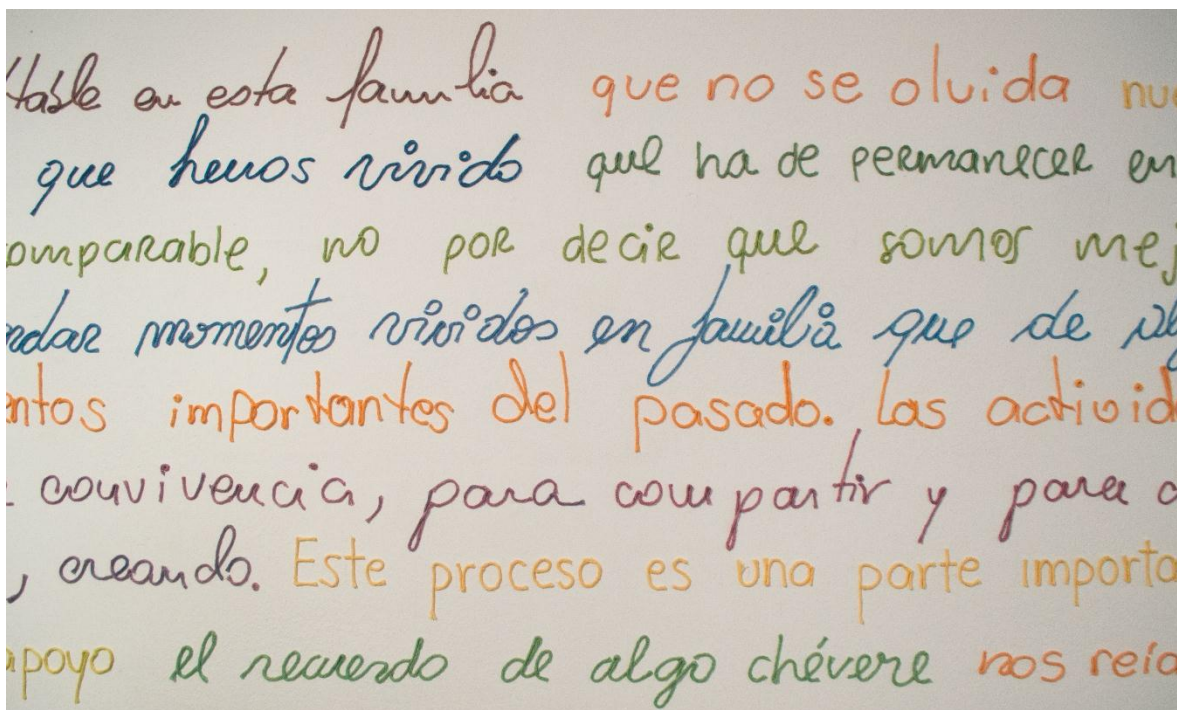 table en esta familia que no se olvida nue
que hemos vivido que ha de permanecer en
omparable, no por decir que somos mej
ndar momentos vividos en familia que de al
ntos importantes del pasado. Las activid
convivencia, para compartir y para c
, creando. Este proceso es una parte importa
apoyo el recuerdo de algo chévere nos reía